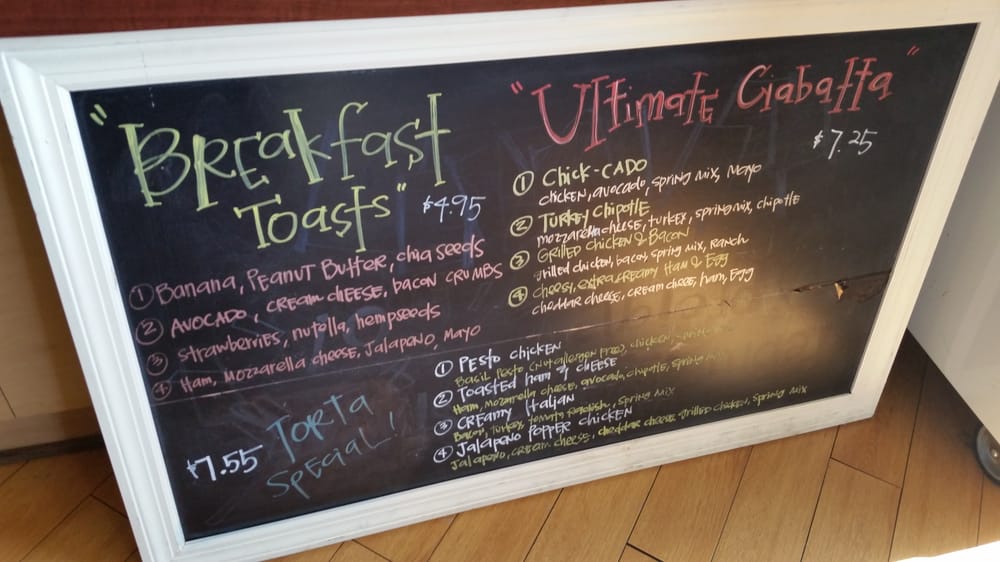 "Breakfast
Toasts" $4.95
① Banana, Peanut Butter, chia seeds
② Avocado, cream cheese, bacon crumbs
③ strawberries, nutella, hempseeds
④ Ham, Mozzarella cheese, Jalapeno, Mayo
"Ultimate Ciabatta"
$7.25
① Chick-Cado
chicken, avocado, spring mix, Mayo
② Turkey Chipotle
mozzarella cheese, turkey, spring mix, chipotle
③ Grilled chicken & Bacon
grilled chicken, bacon, spring mix, ranch
④ cheesy, extra creamy Ham & Egg
cheddar cheese, cream cheese, ham, Egg
Torta
Special!
$7.55
① Pesto chicken
Basil Pesto (Nut allergen free), chicken,
② Toasted ham & cheese
Ham, mozzarella cheese, avocado, chipotle, spring mix
③ Creamy Italian
Bacon, Turkey, tomato, spring mix
④ Jalapeno Popper chicken
Jalapeno, cream cheese, cheddar cheese, grilled chicken, spring mix